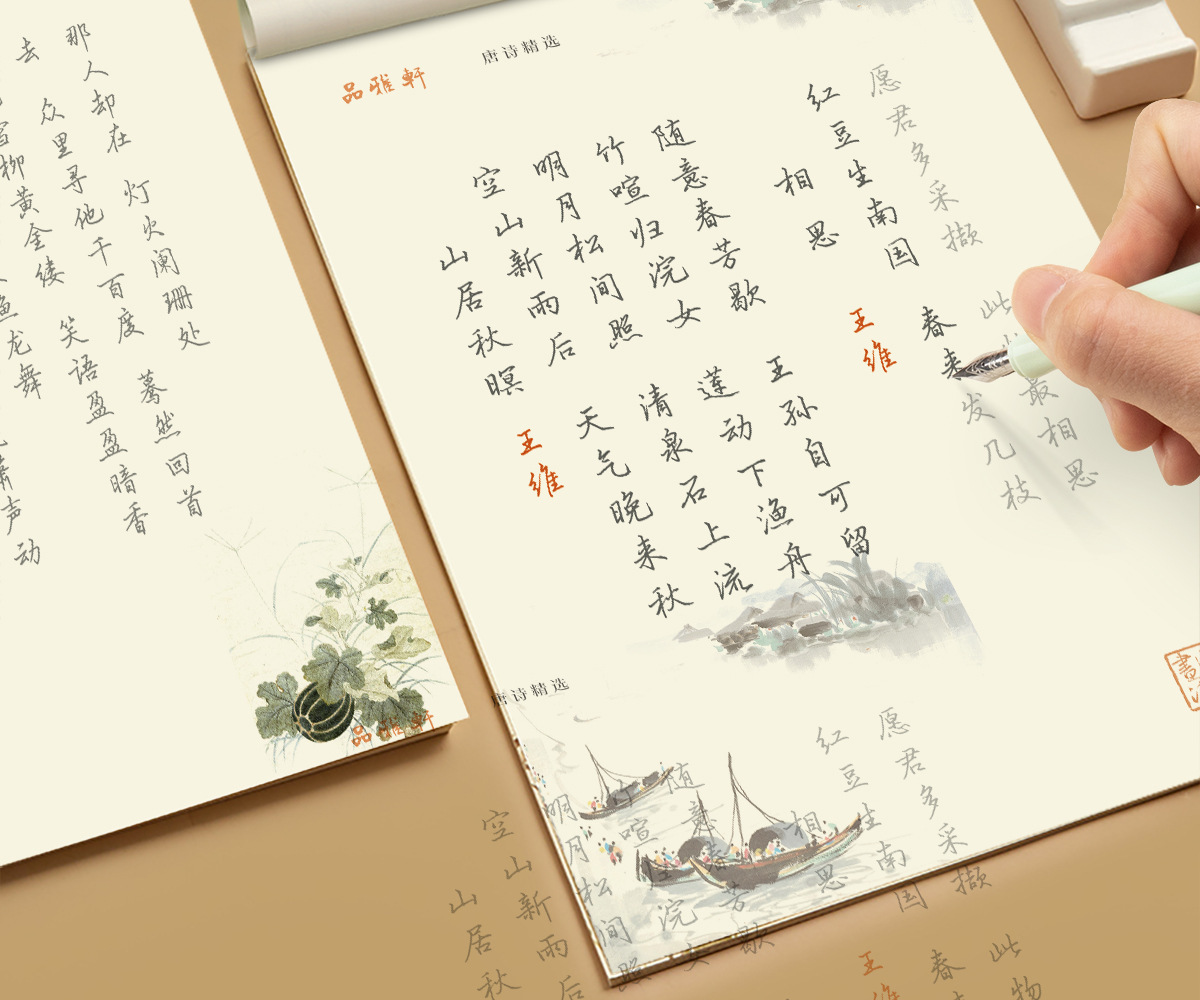 鱼龙舞
箫声动
柳黄金缕
笑语盈盈暗香
去
众里寻他千百度
蓦然回首
那人却在
灯火阑珊处
唐诗精选
品雅軒
山居秋暝
王维
空山新雨后
天气晚来秋
明月松间照
清泉石上流
竹喧归浣女
莲动下渔舟
随意春芳歇
王孙自可留
相思
王维
红豆生南国
春来发几枝
愿君多采撷
此物最相思
品雅軒
唐诗精选
山居秋
空山新雨后
明月松间照
竹喧归浣女
随意春芳歇
相思
王维
红豆生南国
春
愿君多采撷
此物